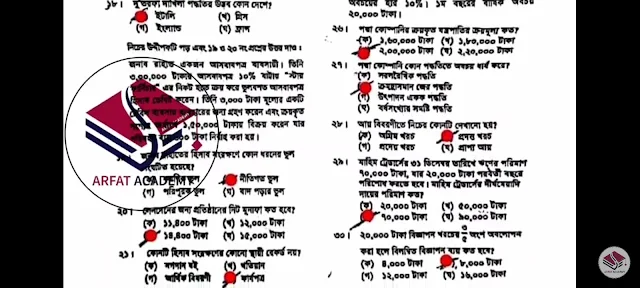 ১৮। দু'তরফা দাখিলা পদ্ধতির উদ্ভব কোন দেশে?
ইটালি (খ) গ্রিস
(গ) ইংল্যান্ড (ঘ) ফ্রান্স
নিচের উদ্দীপকটি পড় এবং ১৯ ও ২০ নং প্রশ্নের উত্তর দাও।
জনাব রাহাত একজন আসবাবপত্র ব্যবসায়ী। তিনি
৩,০০,০০০ টাকার আসবাবপত্র ১০% বাট্টায় "স্টার
এর নিকট হতে ক্রয় করে ভুলবশত আসবাবপত্র
হিসাব ডেবিট করেন। তিনি ৩,০০০ টাকা মূল্যের একটি
জন্য গ্রহণ করেন এবং ক্রয়কৃত
১,৫০,০০০ টাকায় বিক্রয় করেন যার
টাকা নির্বাহ করা হয়।
হিসাব সংরক্ষণে কোন ধরনের ভুল
হয়েছে?
ভুল নীতিগত ভুল
(গ) পরিপূরক ভুল (ঘ) বাদ পড়ার ভুল
ARFAT ACADEMY
২০। লেনদেনের জন্য প্রতিষ্ঠানের নিট মুনাফা কত হবে?
(ক) ১১,৪০০ টাকা (খ) ১২,০০০ টাকা
১৪,৪০০ টাকা (ঘ) ১৫,০০০ টাকা
২১। কোনটি হিসাব সংরক্ষণের কোনো স্থায়ী রেকর্ড নয়?
(ক) নগদান বই (খ) খতিয়ান
(গ) আর্থিক বিবরণী কার্যপত্র
অবচয়ের হার ১০%। ১ম বছরের বার্ষিক অবচয়
২০,০০০ টাকা।
২৬। পদ্মা কোম্পানির ক্রয়কৃত যন্ত্রপাতির ক্রয়মূল্য কত?
(ক) ১,৬০,০০০ টাকা (খ) ১,৮০,০০০ টাকা
২,০০,০০০ টাকা (ঘ) ২,২০,০০০ টাকা
২৭। পদ্মা কোম্পানি কোন পদ্ধতিতে অবচয় ধার্য করে?
(ক) সরলরৈখিক পদ্ধতি
ক্রমহ্রাসমান জের পদ্ধতি
(গ) উৎপাদন একক পদ্ধতি
(ঘ) বর্ষসংখ্যার সমষ্টি পদ্ধতি
২৮। আয় বিবরণীতে নিচের কোনটি দেখানো হয়?
(ক) অগ্রিম খরচ প্রদত্ত খরচ
(গ) প্রদেয় খরচ (ঘ) প্রাপ্য আয়
২৯। মাহিম ট্রেডার্সের ৩১ ডিসেম্বর তারিখে ঋণের পরিমাণ
৭০,০০০ টাকা, যার ২০,০০০ টাকা পরবর্তী বছরে
পরিশোধ করতে হবে। মাহিম ট্রেডার্সের দীর্ঘমেয়াদি
দায়ের পরিমাণ কত?
(ক) ২০,০০০ টাকা (খ) ৫০,০০০ টাকা
৭০,০০০ টাকা (ঘ) ৯০,০০০ টাকা
৩০। ২০,০০০ টাকা বিজ্ঞাপন খরচের ৩/৫ অংশ অবলোপন
করা হলে বিলম্বিত বিজ্ঞাপন ব্যয় কত হবে?
(ক) ৪,০০০ টাকা ৮,০০০ টাকা
(গ) ১২,০০০ টাকা (ঘ) ১৬,০০০ টাকা